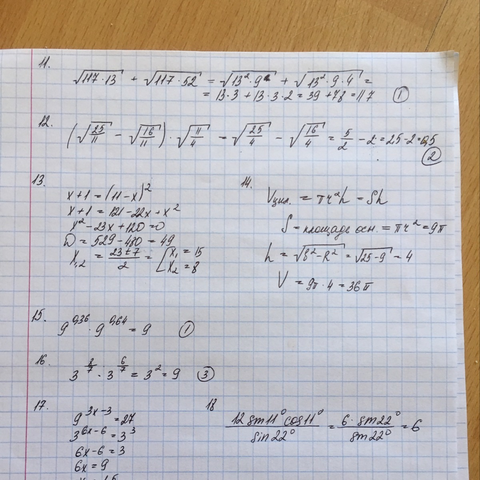 11.
√117·13 + √117·52 = √13²·9 + √13²·9·4 =
= 13·3 + 13·3·2 = 39 + 78 = 117 ①
12.
(√25/11 − √16/11) · √11/4 = √25/4 − √16/4 = 5/2 − 2 = 2,5 − 2 = 0,5
②
13.
x+1 = (11−x)²
x+1 = 121 − 22x + x²
x² − 23x + 120 = 0
D = 529 − 480 = 49
x₁,₂ = (23±7)/2 = [x₁ = 15
x₂ = 8
14.
Vцил. = πr²h = Sh
S = площадь осн = πr² = 9π
h = √S²−R² = √25−9 = 4
V = 9π·4 = 36π
15.
9^0,36 · 9^0,64 = 9 ①
16.
3^(8/7) · 3^(6/7) = 3² = 9 ③
17.
9^(3x−3) = 27
3^(6x−6) = 3³
6x−6 = 3
6x = 9
18
12 sin11° cos11° / sin22° = 6·sin22° / sin22° = 6